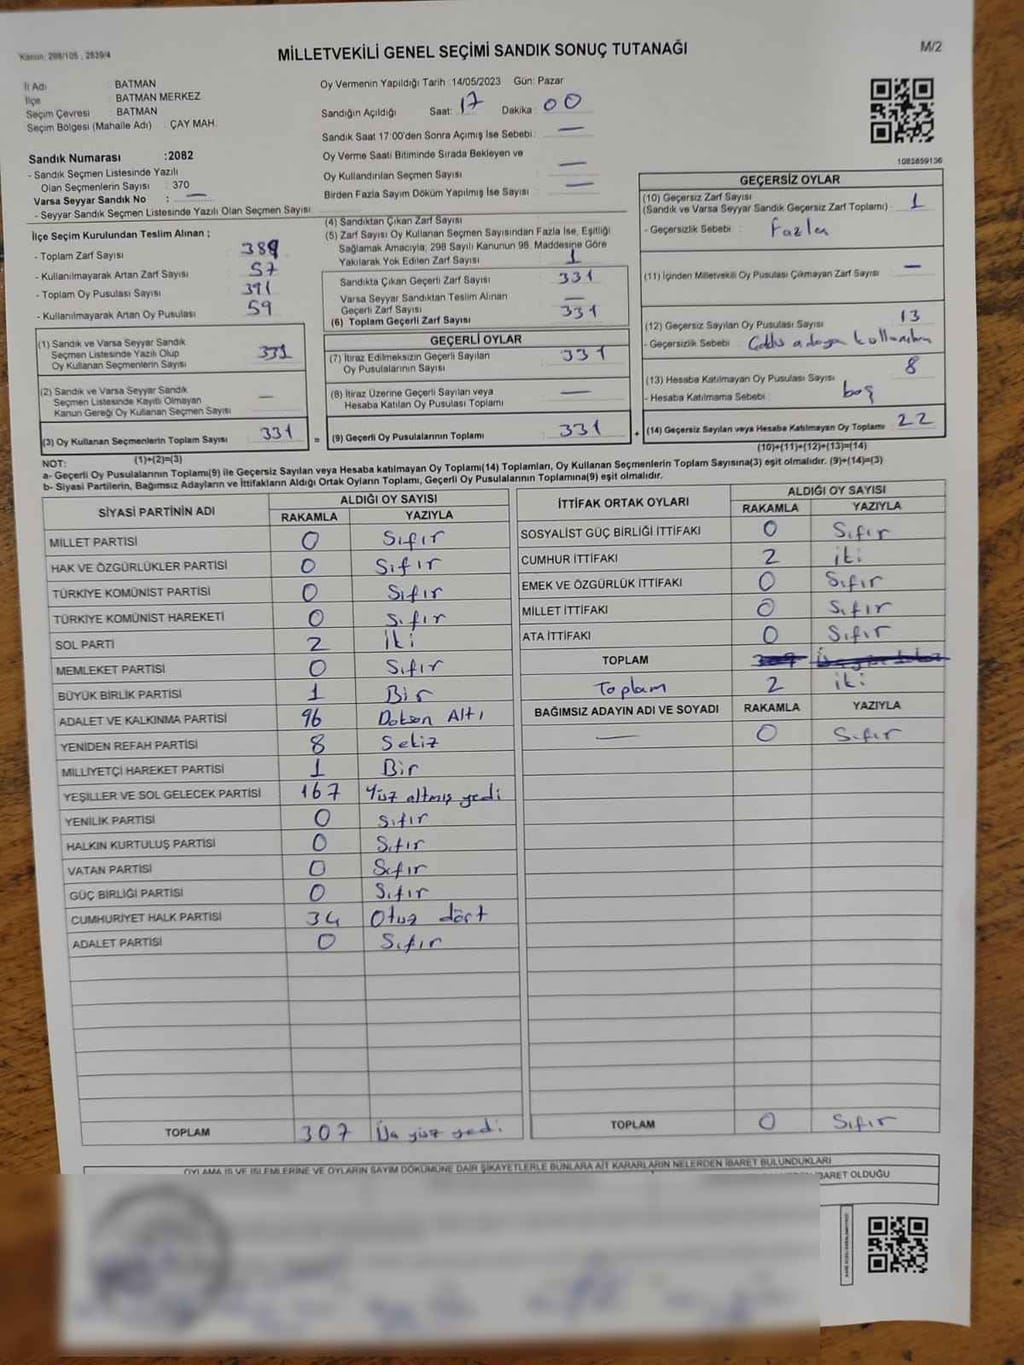 Kanun: 298/105 , 2839/4
MİLLETVEKİLİ GENEL SEÇİMİ SANDIK SONUÇ TUTANAĞI
M/2
İl Adı BATMAN
İlçe BATMAN MERKEZ
Seçim Çevresi BATMAN
Seçim Bölgesi (Mahalle Adı) : ÇAY MAH.
Sandık Numarası :2082
- Sandık Seçmen Listesinde Yazılı
Olan Seçmenlerin Sayısı : 370
Varsa Seyyar Sandık No : —
- Seyyar Sandık Seçmen Listesinde Yazılı Olan Seçmen Sayısı
Oy Vermenin Yapıldığı Tarih :14/05/2023 Gün: Pazar
Sandığın Açıldığı Saat: 17 Dakika : 00
Sandık Saat 17:00'den Sonra Açımış İse Sebebi : —
Oy Verme Saati Bitiminde Sırada Bekleyen ve
Oy Kullandırılan Seçmen Sayısı : —
Birden Fazla Sayım Döküm Yapılmış İse Sayısı : —
1082859136
İlçe Seçim Kurulundan Teslim Alınan ;
- Toplam Zarf Sayısı 389
- Kullanılmayarak Artan Zarf Sayısı 57
- Toplam Oy Pusulası Sayısı 391
- Kullanılmayarak Artan Oy Pusulası 59
(1) Sandık ve Varsa Seyyar Sandık
Seçmen Listesinde Yazılı Olup
Oy Kullanan Seçmenlerin Sayısı 331
(2) Sandık ve Varsa Seyyar Sandık
Seçmen Listesinde Kayıtlı Olmayan
Kanun Gereği Oy Kullanan Seçmen Sayısı —
(3) Oy Kullanan Seçmenlerin Toplam Sayısı 331
(1)+(2)=(3)
(4) Sandıktan Çıkan Zarf Sayısı
(5) Zarf Sayısı Oy Kullanan Seçmen Sayısından Fazla İse, Eşitliği
Sağlamak Amacıyla, 298 Sayılı Kanunun 98. Maddesine Göre
Yakılarak Yok Edilen Zarf Sayısı 1
Sandıkta Çıkan Geçerli Zarf Sayısı 331
Varsa Seyyar Sandıktan Teslim Alınan
Geçerli Zarf Sayısı —
(6) Toplam Geçerli Zarf Sayısı 331
GEÇERLİ OYLAR
(7) İtiraz Edilmeksizin Geçerli Sayılan
Oy Pusulalarının Sayısı 331
(8) İtiraz Üzerine Geçerli Sayılan veya
Hesaba Katılan Oy Pusulası Toplamı —
= (9) Geçerli Oy Pusulalarının Toplamı 331 +
GEÇERSİZ OYLAR
(10) Geçersiz Zarf Sayısı
(Sandık ve Varsa Seyyar Sandık Geçersiz Zarf Toplamı) : 1
- Geçersizlik Sebebi : Fazla
(11) İçinden Milletvekili Oy Pusulası Çıkmayan Zarf Sayısı —
(12) Geçersiz Sayılan Oy Pusulası Sayısı 13
- Geçersizlik Sebebi :
(13) Hesaba Katılmayan Oy Pusulası Sayısı 8
- Hesaba Katılmama Sebebi : boş
(14) Geçersiz Sayılan veya Hesaba Katılmayan Oy Toplamı 22
(10)+(11)+(12)+(13)=(14)
NOT:
a- Geçerli Oy Pusulalarının Toplamı(9) ile Geçersiz Sayılan veya Hesaba katılmayan Oy Toplamı(14) Toplamları, Oy Kullanan Seçmenlerin Toplam Sayısına(3) eşit olmalıdır. (9)+(14)=(3)
b- Siyasi Partilerin, Bağımsız Adayların ve İttifakların Aldığı Ortak Oyların Toplamı, Geçerli Oy Pusulalarının Toplamına(9) eşit olmalıdır.
SİYASİ PARTİNİN ADI ALDIĞI OY SAYISI
RAKAMLA YAZIYLA
MİLLET PARTİSİ 0 Sıfır
HAK VE ÖZGÜRLÜKLER PARTİSİ 0 Sıfır
TÜRKİYE KOMÜNİST PARTİSİ 0 Sıfır
TÜRKİYE KOMÜNİST HAREKETİ 0 Sıfır
SOL PARTİ 2 İki
MEMLEKET PARTİSİ 0 Sıfır
BÜYÜK BİRLİK PARTİSİ 1 Bir
ADALET VE KALKINMA PARTİSİ 96 Doksan Altı
YENİDEN REFAH PARTİSİ 8 Sekiz
MİLLİYETÇİ HAREKET PARTİSİ 1 Bir
YEŞİLLER VE SOL GELECEK PARTİSİ 167 Yüz altmış yedi
YENİLİK PARTİSİ 0 Sıfır
HALKIN KURTULUŞ PARTİSİ 0 Sıfır
VATAN PARTİSİ 0 Sıfır
GÜÇ BİRLİĞİ PARTİSİ 0 Sıfır
CUMHURİYET HALK PARTİSİ 34 Otuz dört
ADALET PARTİSİ 0 Sıfır
TOPLAM 307 Üç yüz yedi
İTTİFAK ORTAK OYLARI ALDIĞI OY SAYISI
RAKAMLA YAZIYLA
SOSYALİST GÜÇ BİRLİĞİ İTTİFAKI 0 Sıfır
CUMHUR İTTİFAKI 2 iki
EMEK VE ÖZGÜRLÜK İTTİFAKI 0 Sıfır
MİLLET İTTİFAKI 0 Sıfır
ATA İTTİFAKI 0 Sıfır
TOPLAM
Toplam 2 iki
BAĞIMSIZ ADAYIN ADI VE SOYADI RAKAMLA YAZIYLA
— 0 Sıfır
TOPLAM 0 Sıfır
OYLAMA İŞ VE İŞLEMLERİNE VE OYLARIN SAYIM DÖKÜMÜNE DAİR ŞİKAYETLERLE BUNLARA AİT KARARLARIN NELERDEN İBARET BULUNDUKLARI
İBARET OLDUĞU